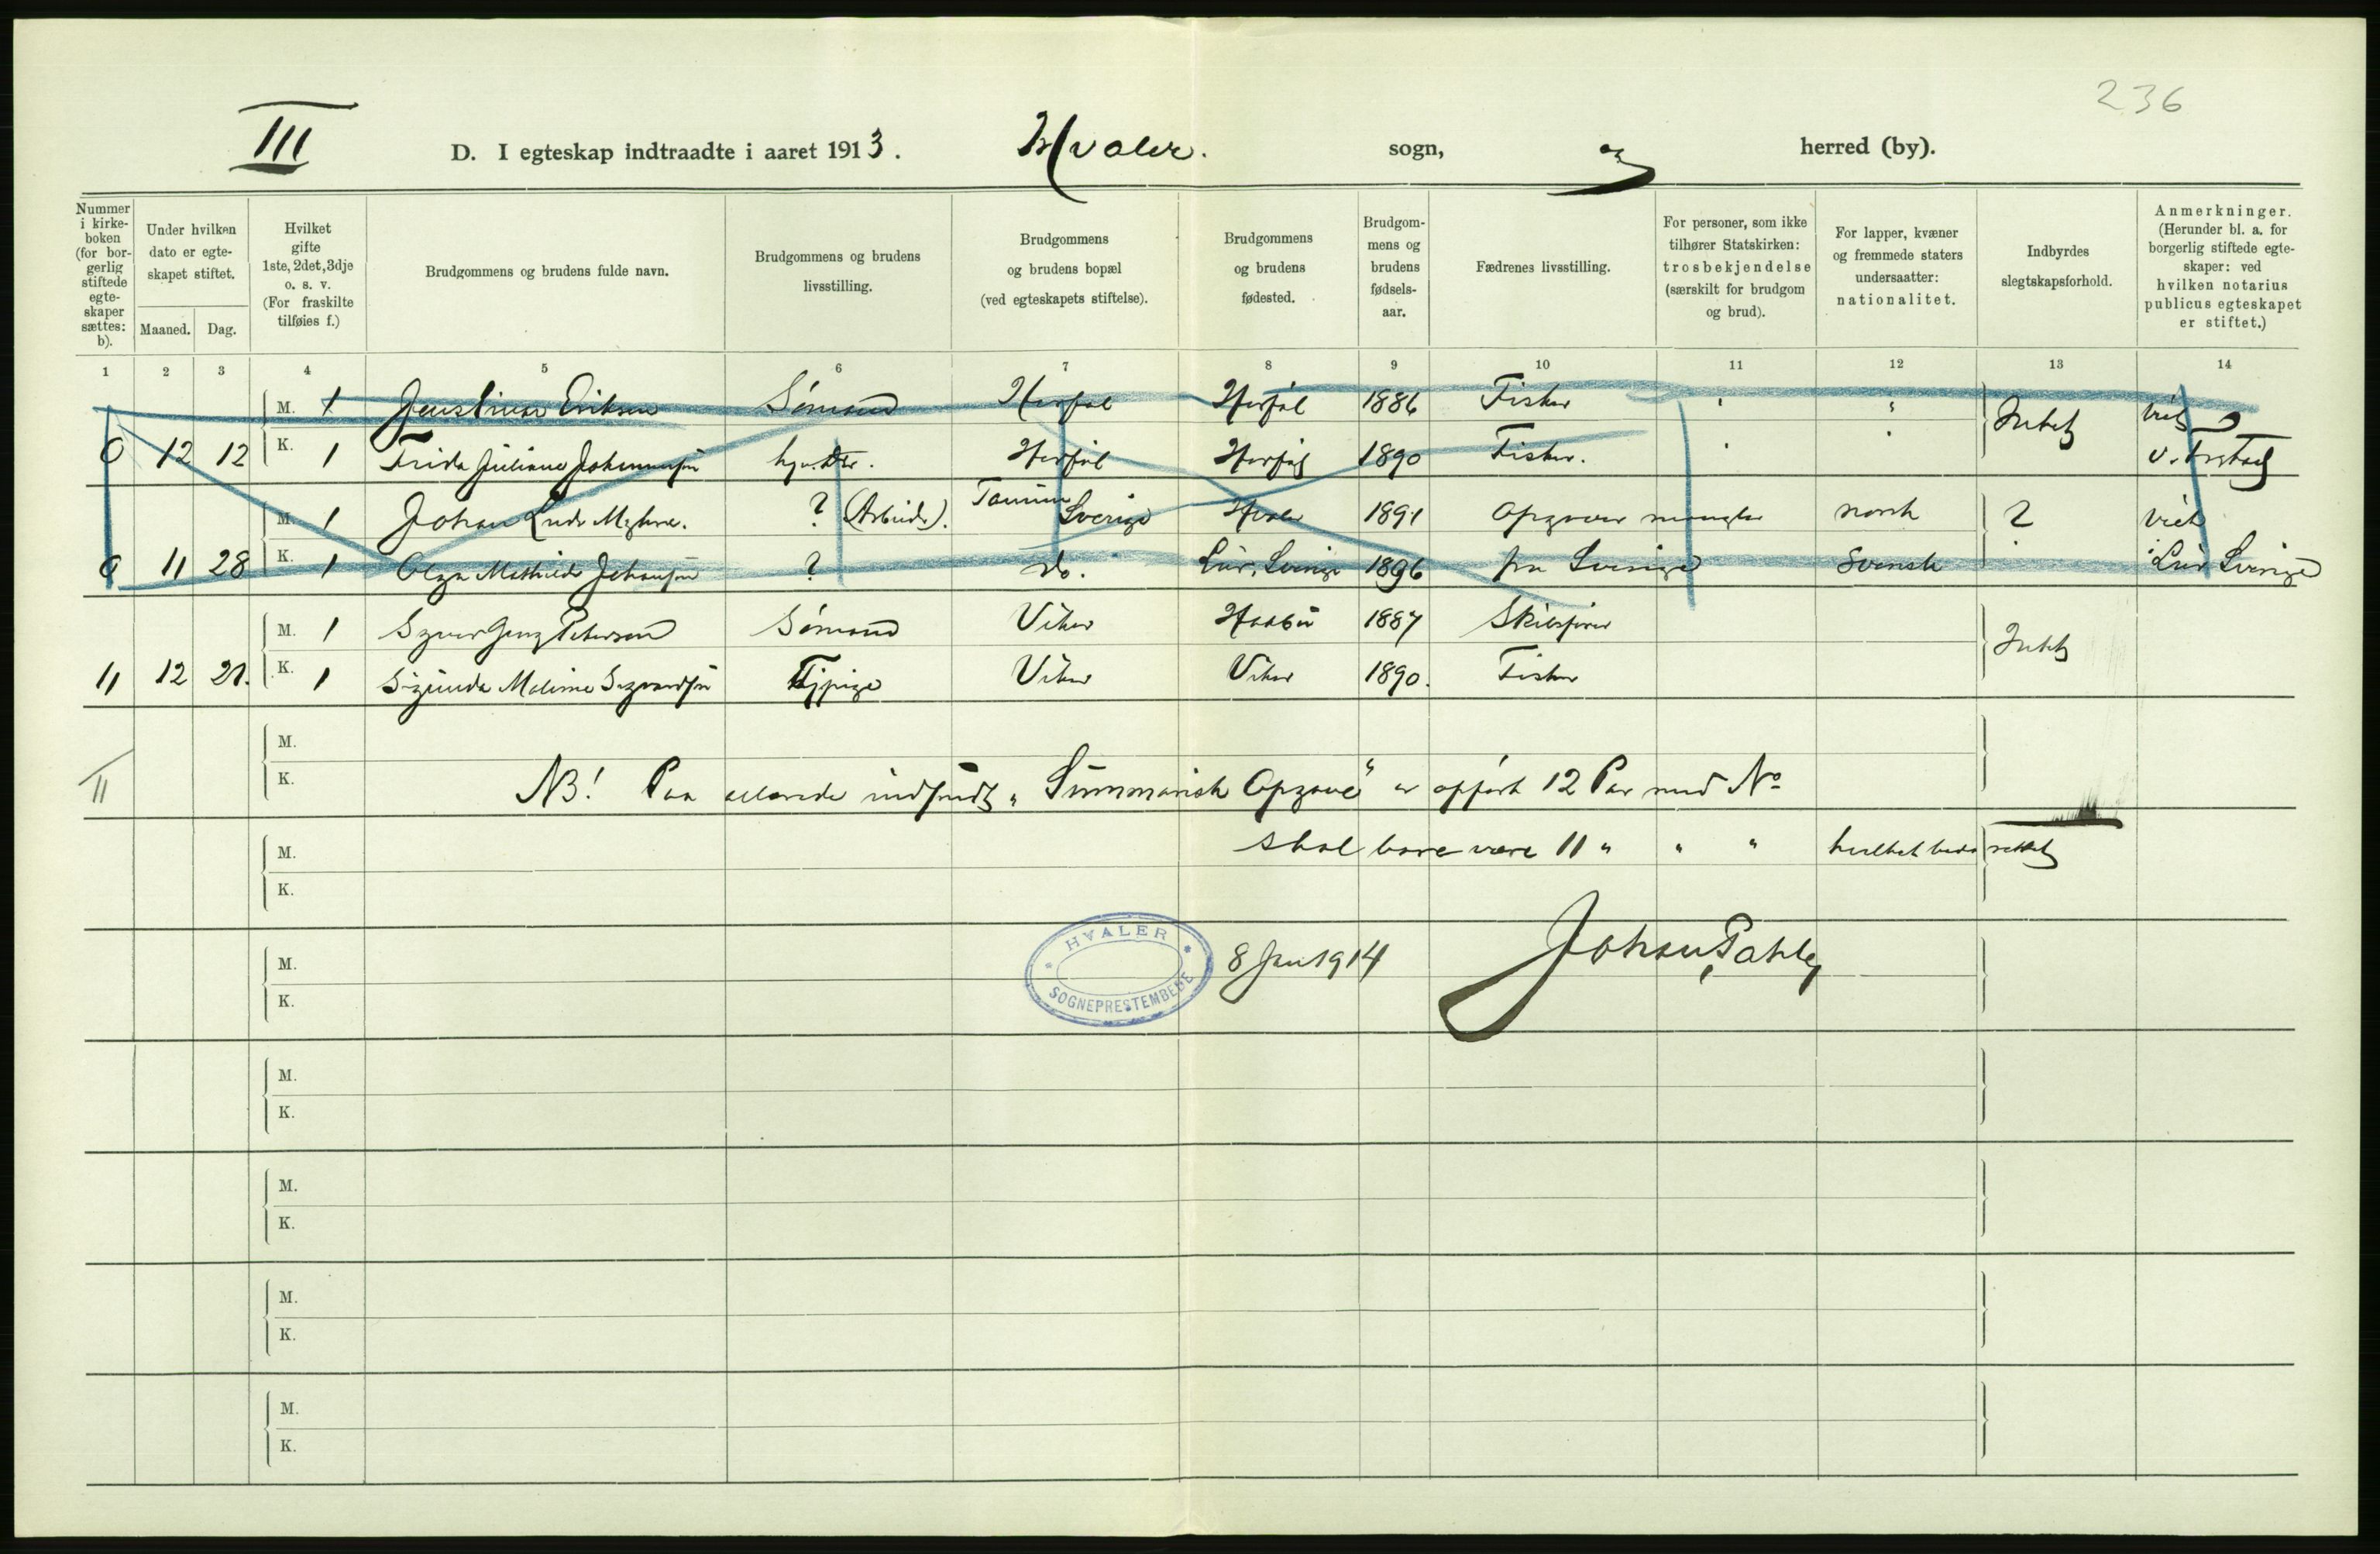 236
III D. I egteskap indtraadte i aaret 1913. Hvaler. sogn, og herred (by).
Nummer i kirkeboken (for borgerlig stiftede egteskaper sættes: b).
Under hvilken dato er egteskapet stiftet.
Maaned. Dag.
Hvilket gifte 1ste, 2det, 3dje o. s. v. (For fraskilte tilføies f.)
Brudgommens og brudens fulde navn.
Brudgommens og brudens livsstilling.
Brudgommens og brudens bopæl (ved egteskapets stiftelse).
Brudgommens og brudens fødested.
Brudgommens og brudens fødselsaar.
Fædrenes livsstilling.
For personer, som ikke tilhører Statskirken: trosbekjendelse (særskilt for brudgom og brud).
For lapper, kvæner og fremmede staters undersaatter: nationalitet.
Indbyrdes slegtskapsforhold.
Anmerkninger. (Herunder bl. a. for borgerlig stiftede egteskaper: ved hvilken notarius publicus egteskapet er stiftet.)
1 2 3 4 5 6 7 8 9 10 11 12 13 14
M. 1 Eriksen Sømand Herføl Herføl 1886 Fisker " " Intet viet
0 12 12 K. 1 Frida Juliane Johannesen Herføl Herføl 1890 Fisker. " "
M. 1 Johan ? (Arbeider). Tanum Sverige Hvaler 1891 Opgaver mangler norsk ? viet
0 11 28 K. 1 Olga Mathilde Johansen ? do. Lur, Sverige 1896 fra Sverige Svensk i Lur Sverige
M. 1 Petersen Sømand Viker 1887 Skibsfører Intet
11 12 27. K. 1 Viker Viker 1890. Fisker
II
M.
K. NB! Paa allerede indsendt "Summarisk Opgave" er opført 12 Par med No
M. skal bare være 11 " " " hvilket bedes rettet
K.
HVALER SOGNEPRESTEMBEDE
M. 8 Jan 1914 Johan
K.
M.
K.
M.
K.
M.
K.
M.
K.